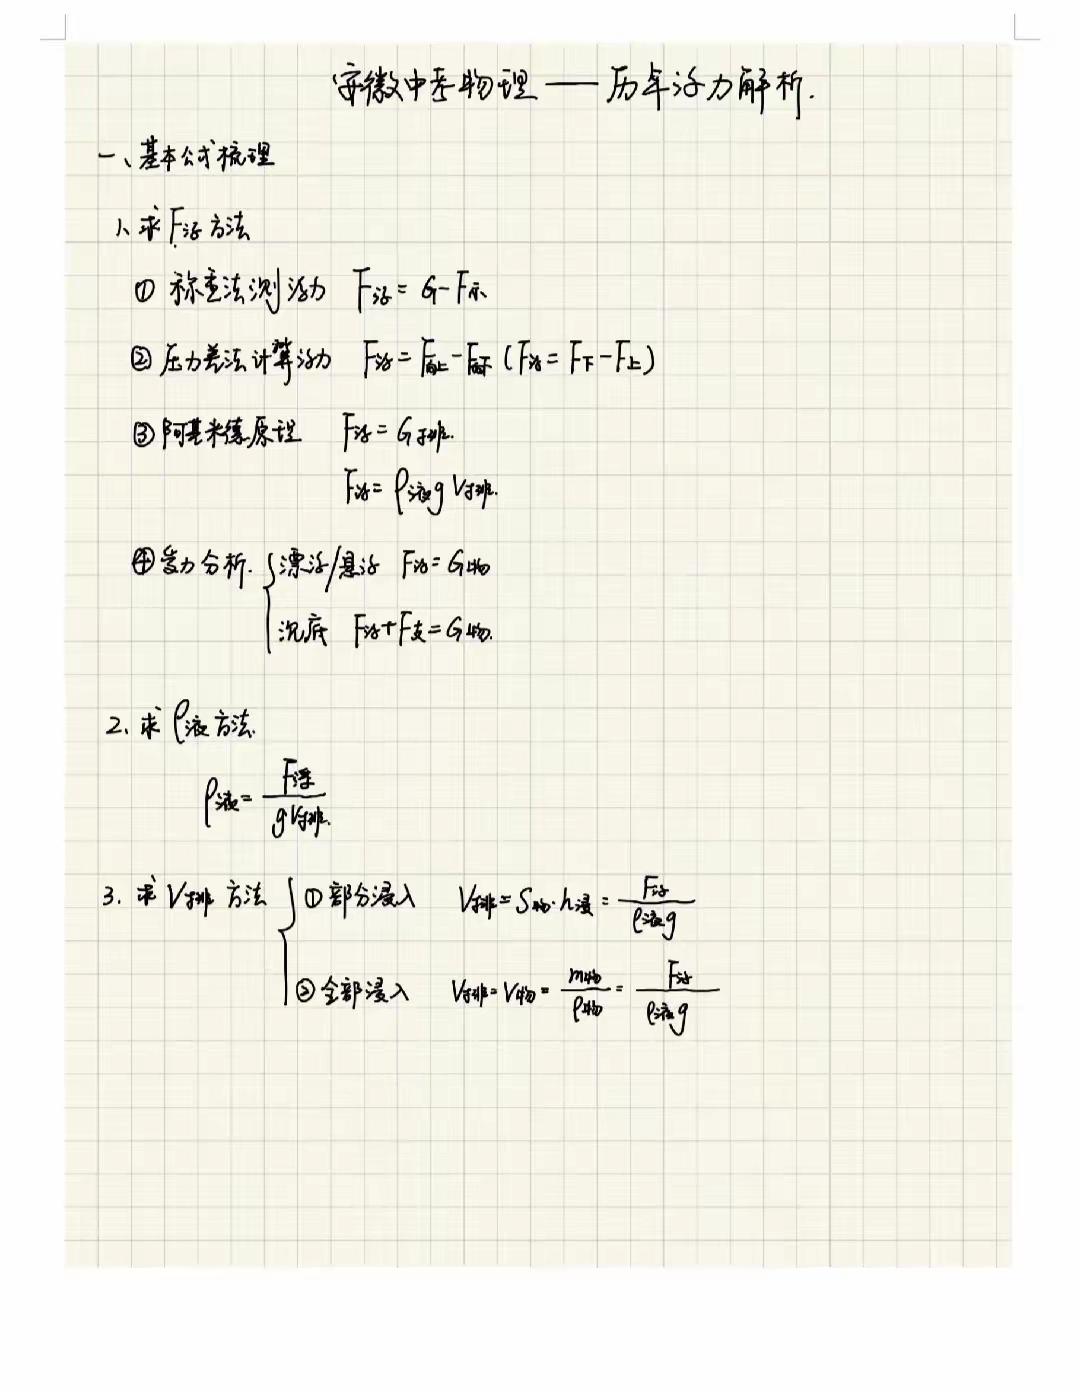 安徽中考物理——历年浮力解析.
一、基本公式梳理
1、求F浮方法
① 称重法测浮力 F浮=G-F示
② 压力差法计算浮力 F浮=F向上-F向下(F浮=F下-F上)
③ 阿基米德原理 F浮=G排.
F浮=ρ液gV排.
④ 受力分析. { 漂浮/悬浮 F浮=G物
沉底 F浮+F支=G物.
2、求ρ液方法.
ρ液=F浮/gV排.
3. 求V排方法 { ① 部分浸入 V排=S物·h浸=F浮/ρ液g
② 全部浸入 V排=V物=m物/ρ物=F浮/ρ液g